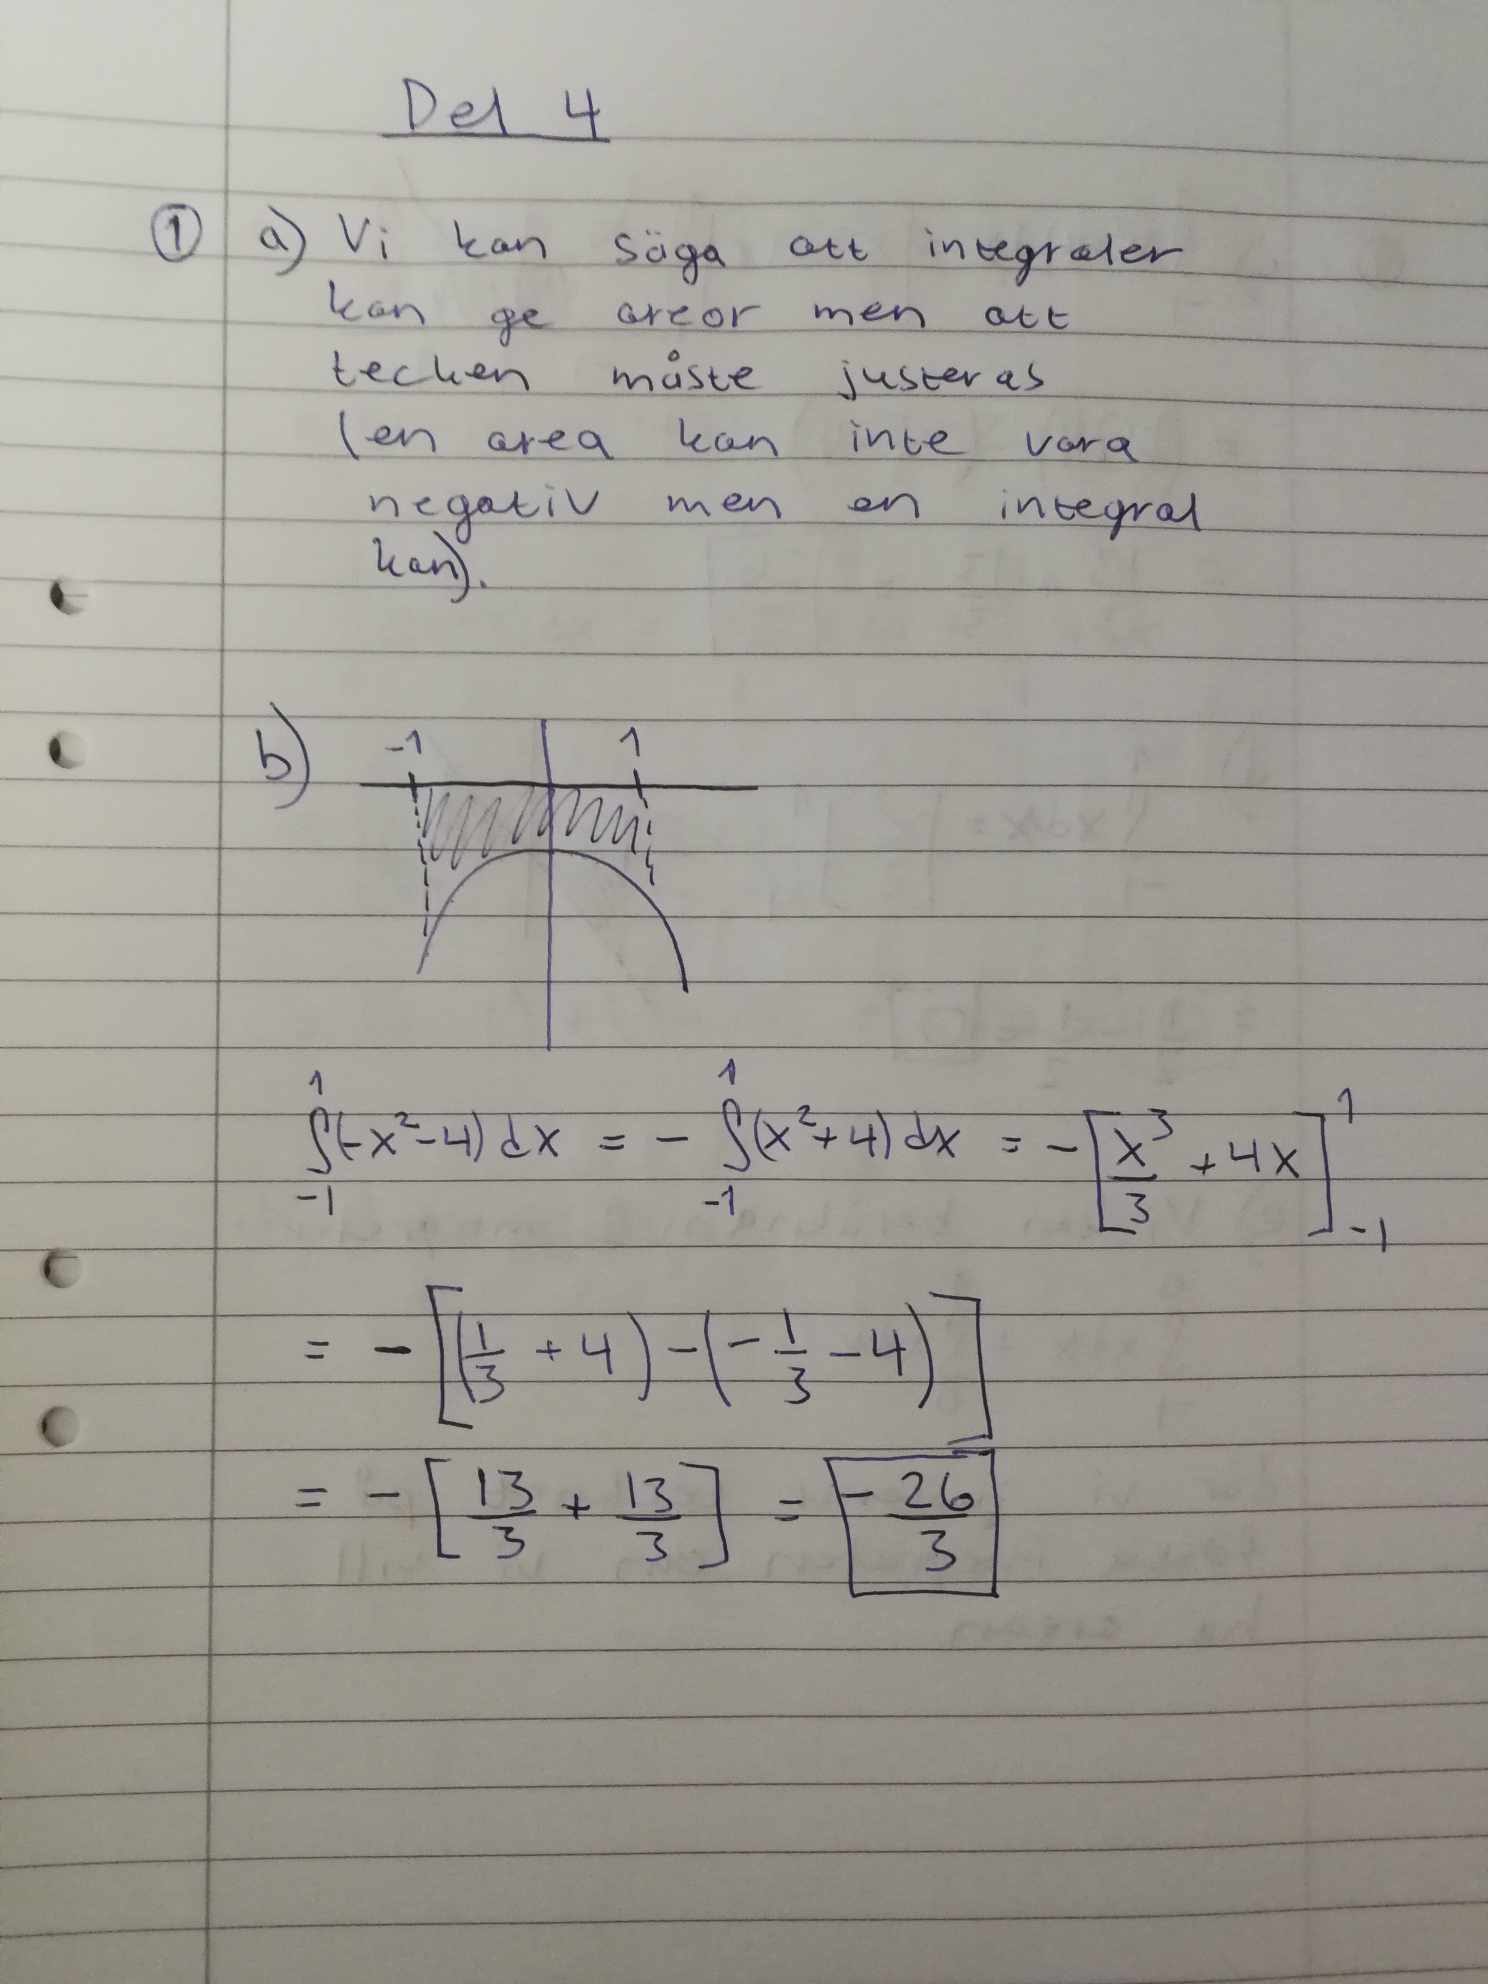 Del 4
① a) Vi kan säga att integraler
kan ge areor men att
tecken måste justeras
(en area kan inte vara
negativ men en integral
kan).
b)
-1 1
∫₋₁¹(-x²-4)dx = - ∫₋₁¹(x²+4)dx = -[x³/3 + 4x]₋₁¹
= -[(1/3 + 4) - (-1/3 - 4)]
= -[13/3 + 13/3] = -26/3